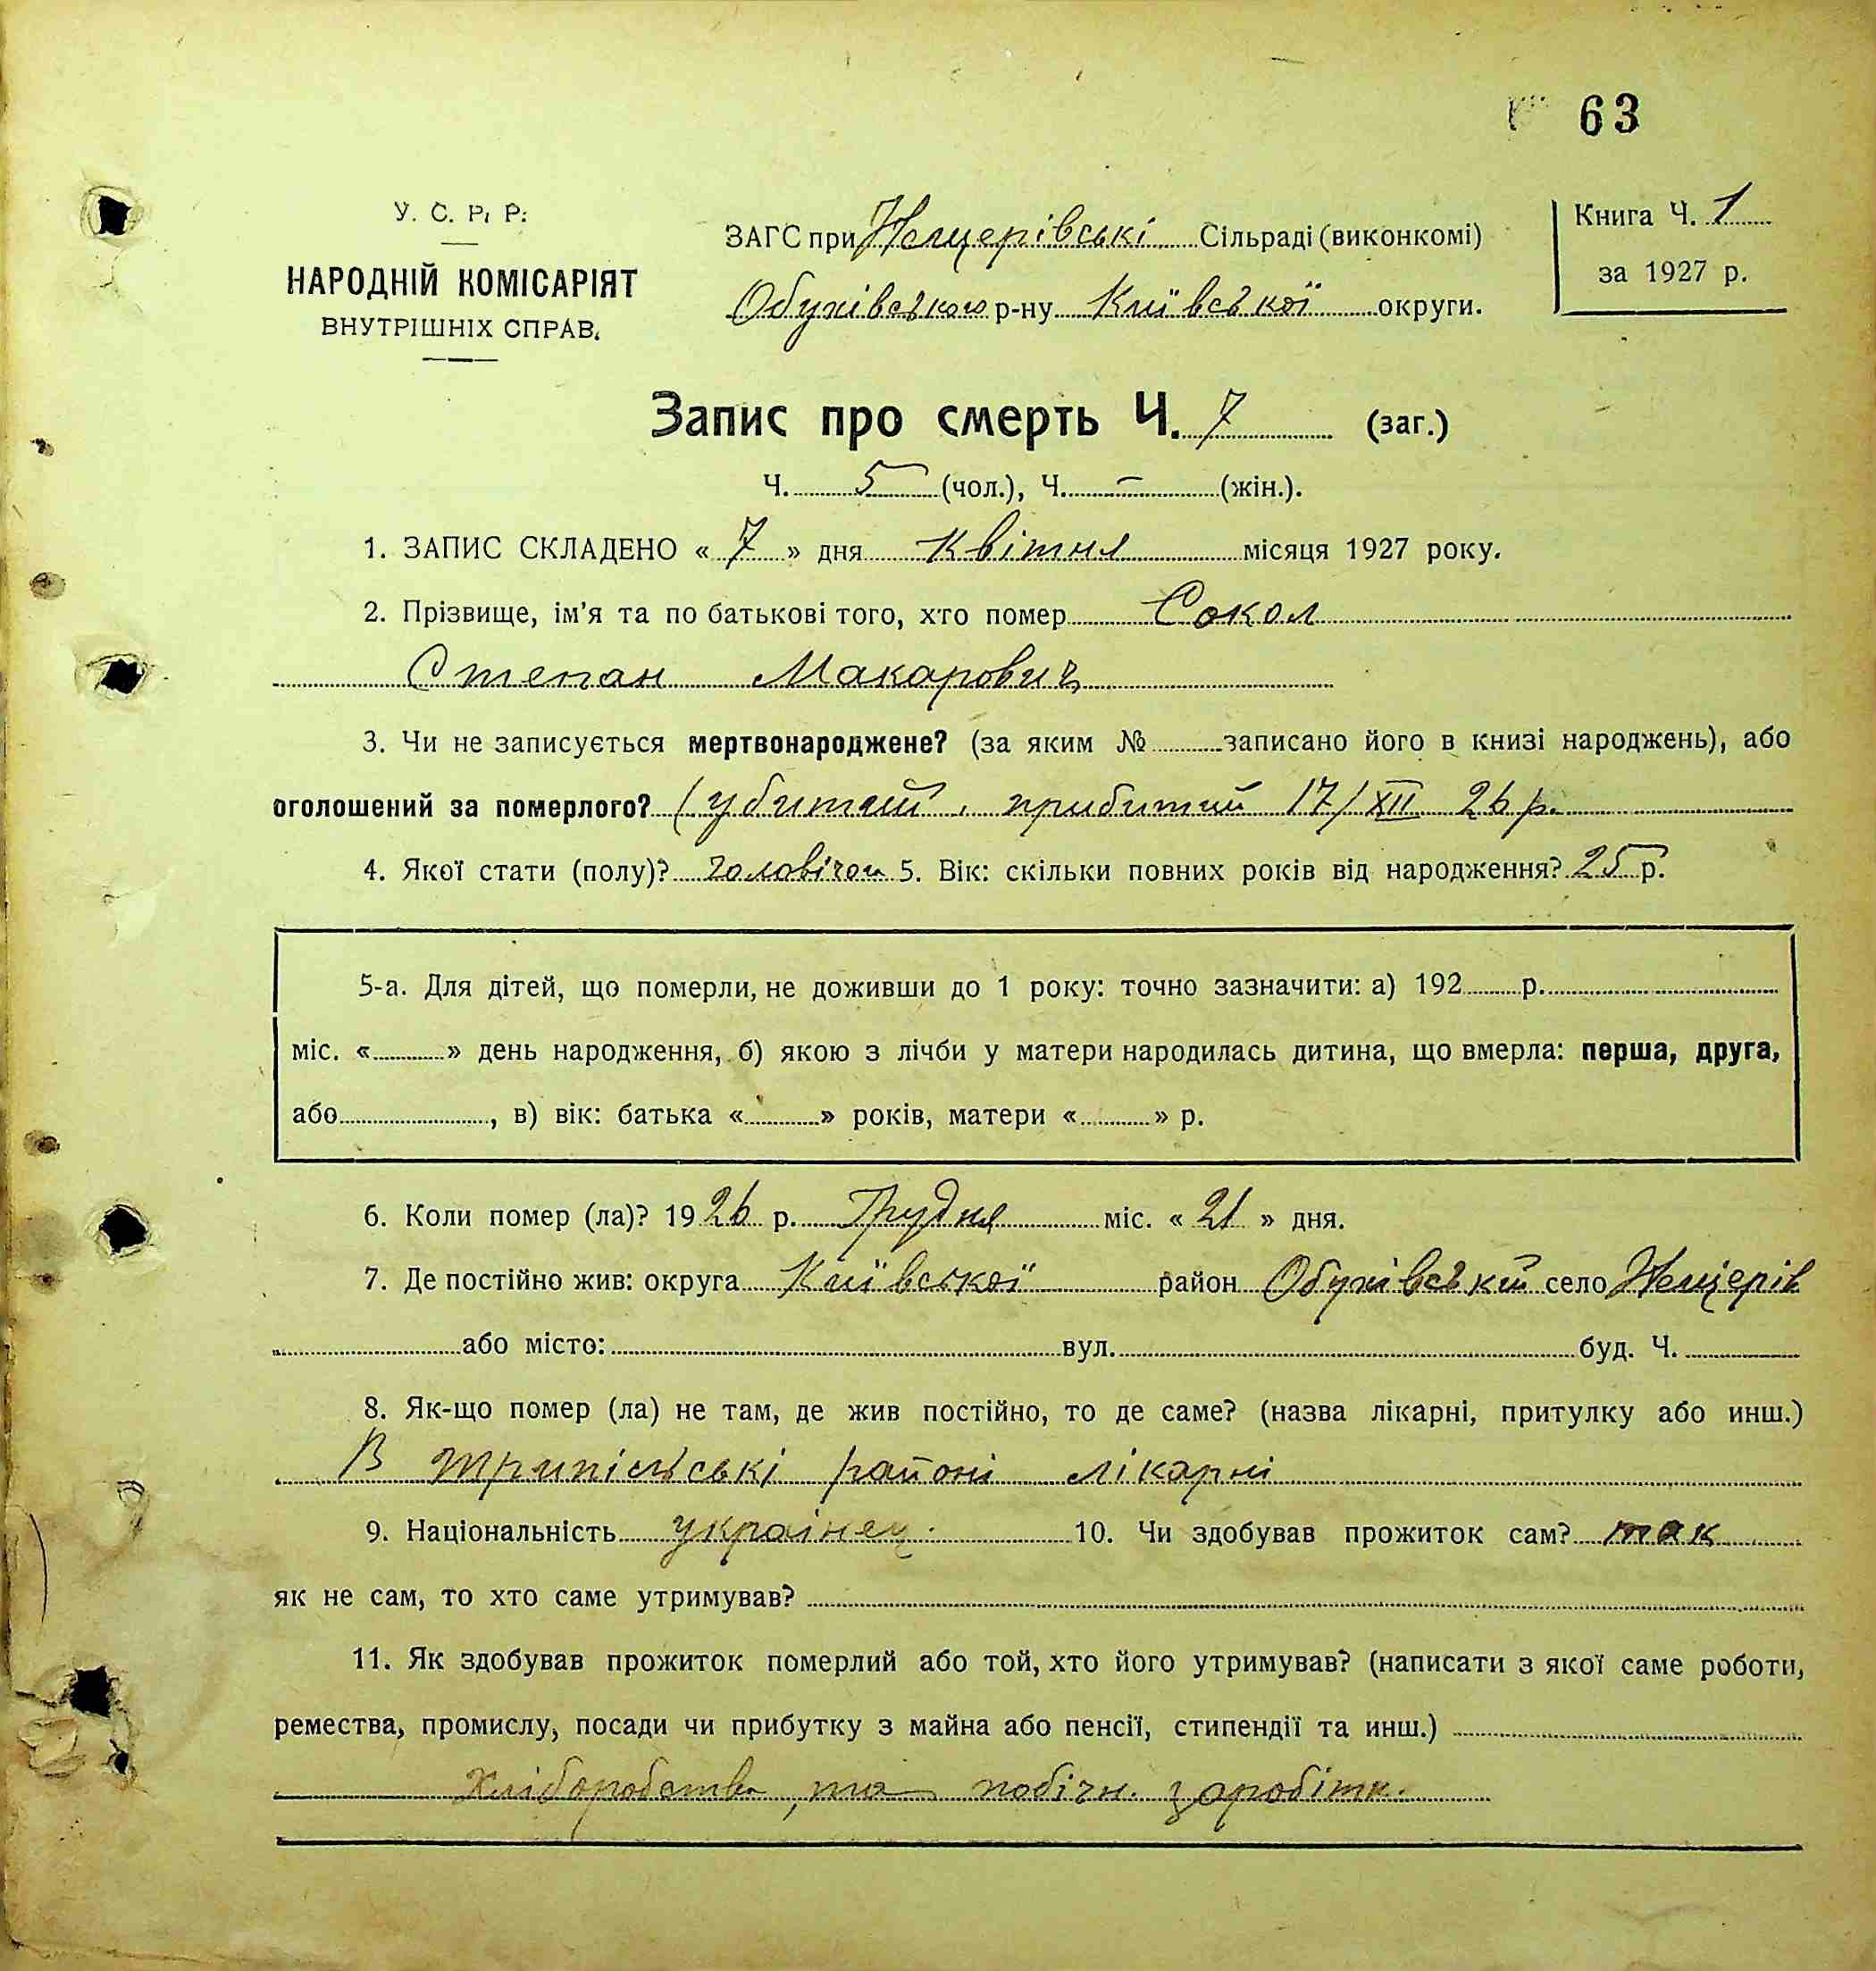 63
У. С. Р. Р.
НАРОДНІЙ КОМІСАРІЯТ
ВНУТРІШНІХ СПРАВ.
ЗАГС при Нещерівські Сільраді (виконкомі)
Обухівського р-ну Київської округи.
Книга Ч. 1
за 1927 р.
Запис про смерть Ч. 7 (заг.)
Ч. 5 (чол.), Ч. – (жін.).
1. ЗАПИС СКЛАДЕНО « 7 » дня Квітня місяця 1927 року.
2. Прізвище, ім'я та по батькові того, хто помер Сокол
Степан Макарович
3. Чи не записується мертвонароджене? (за яким № записано його в книзі народжень), або
оголошений за померлого? (убитий, прибитий 17/XII 26 р.
4. Якої стати (полу)? чоловічої 5. Вік: скільки повних років від народження? 25 р.
5-а. Для дітей, що померли, не доживши до 1 року: точно зазначити: а) 192 р.
міс. « » день народження, б) якою з лічби у матери народилась дитина, що вмерла: перша, друга,
або , в) вік: батька « » років, матери « » р.
6. Коли помер (ла)? 1926 р. Грудня міс. « 21 » дня.
7. Де постійно жив: округа Київської район Обухівський село Нещерів
або місто: вул. буд. Ч.
8. Як-що помер (ла) не там, де жив постійно, то де саме? (назва лікарні, притулку або инш.)
В Трипільські районі лікарні
9. Національність українец. 10. Чи здобував прожиток сам? так
як не сам, то хто саме утримував?
11. Як здобував прожиток померлий або той, хто його утримував? (написати з якої саме роботи,
ремества, промислу, посади чи прибутку з майна або пенсії, стипендії та инш.)
Хліборобства, та побічн. заробітк.